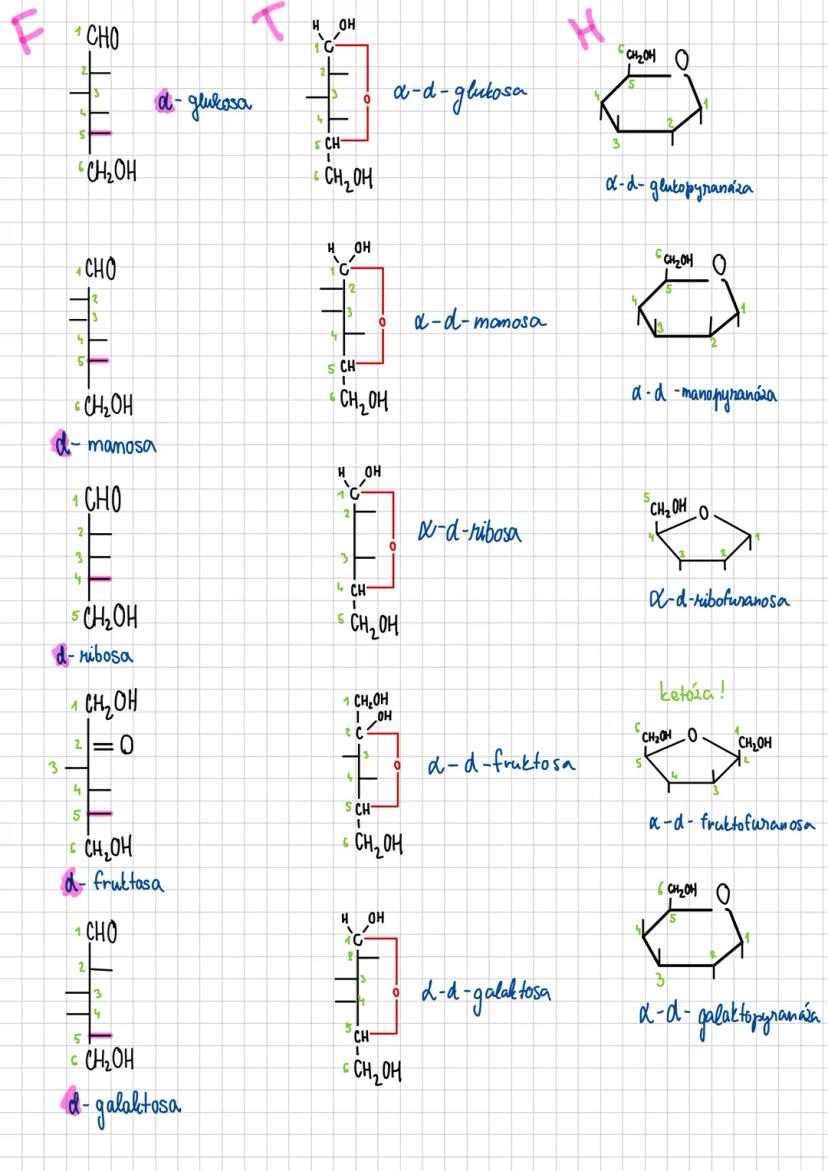 F T H
1 CHO
2
3
4
5
6 CH₂OH
d-glukosa
H OH
1 C
2
3
4
5 CH
O
6 CH₂OH
α-d-glukosa
6 CH₂OH O
5
4
1
3
2
α-d-glukopyranáza
1 CHO
2
3
4
5
6 CH₂OH
d-manosa
H OH
1 C
2
3
4
5 CH
O
6 CH₂OH
α-d-manosa
6 CH₂OH O
5
4
1
3
2
α-d-manopyranóza
1 CHO
2
3
4
5 CH₂OH
d-ribosa
H OH
1 C
2
3
4 CH
O
5 CH₂OH
α-d-ribosa
5
CH₂OH O
4
1
3 2
α-d-ribofuranosa
1 CH₂OH
2 =O
3
4
5
6 CH₂OH
d-fruktosa
1 CH₂OH
OH
2 C
3
4
5 CH
O
6 CH₂OH
α-d-fruktosa
ketóza!
6 1
CH₂OH O CH₂OH
5 2
4 3
α-d-fruktofuranosa
1 CHO
2
3
4
5
6 CH₂OH
d-galaktosa
H OH
1 C
2
3
4
5
CH
O
6 CH₂OH
α-d-galaktosa
6 CH₂OH O
5
4
1
2
3
α-d-galaktopyranáza